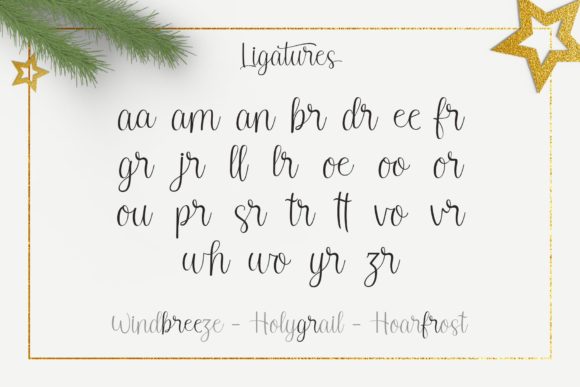 Ligatures
aa am an br dr ee fr
gr jr ll lr oe oo or
ou pr sr tr tt vo vr
wh wo yr zr
Windbreeze - Holygrail - Hoarfrost